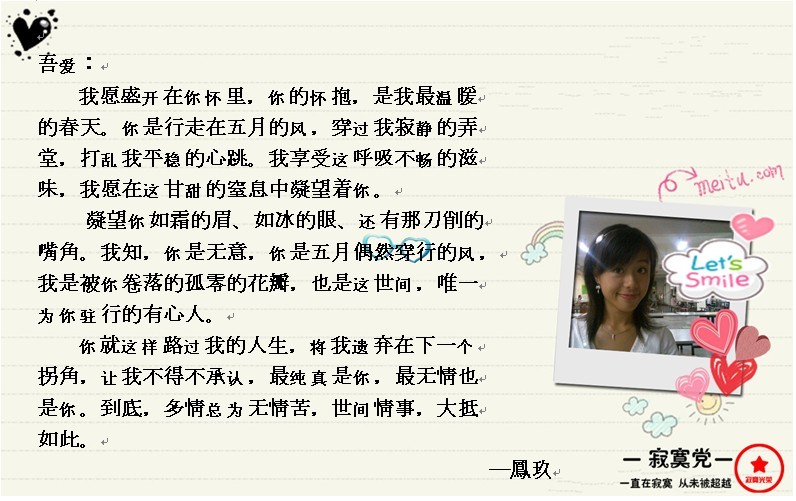 吾爱：
我愿盛开在你怀里，你的怀抱，是我最温暖
的春天。你是行走在五月的风，穿过我寂静的弄
堂，打乱我平稳的心跳。我享受这呼吸不畅的滋
味，我愿在这甘甜的窒息中凝望着你。
凝望你如霜的眉、如冰的眼、还有那刀削的
嘴角。我知，你是无意，你是五月偶然穿行的风，
我是被你卷落的孤零的花瓣，也是这世间，唯一
为你驻行的有心人。
你就这样路过我的人生，将我遗弃在下一个
拐角，让我不得不承认，最纯真是你，最无情也
是你。到底，多情总为无情苦，世间情事，大抵
如此。
—鳳玖
meitu.com
Let's
Smile
— 寂寞党 —
一直在寂寞 从未被超越
寂寞光荣